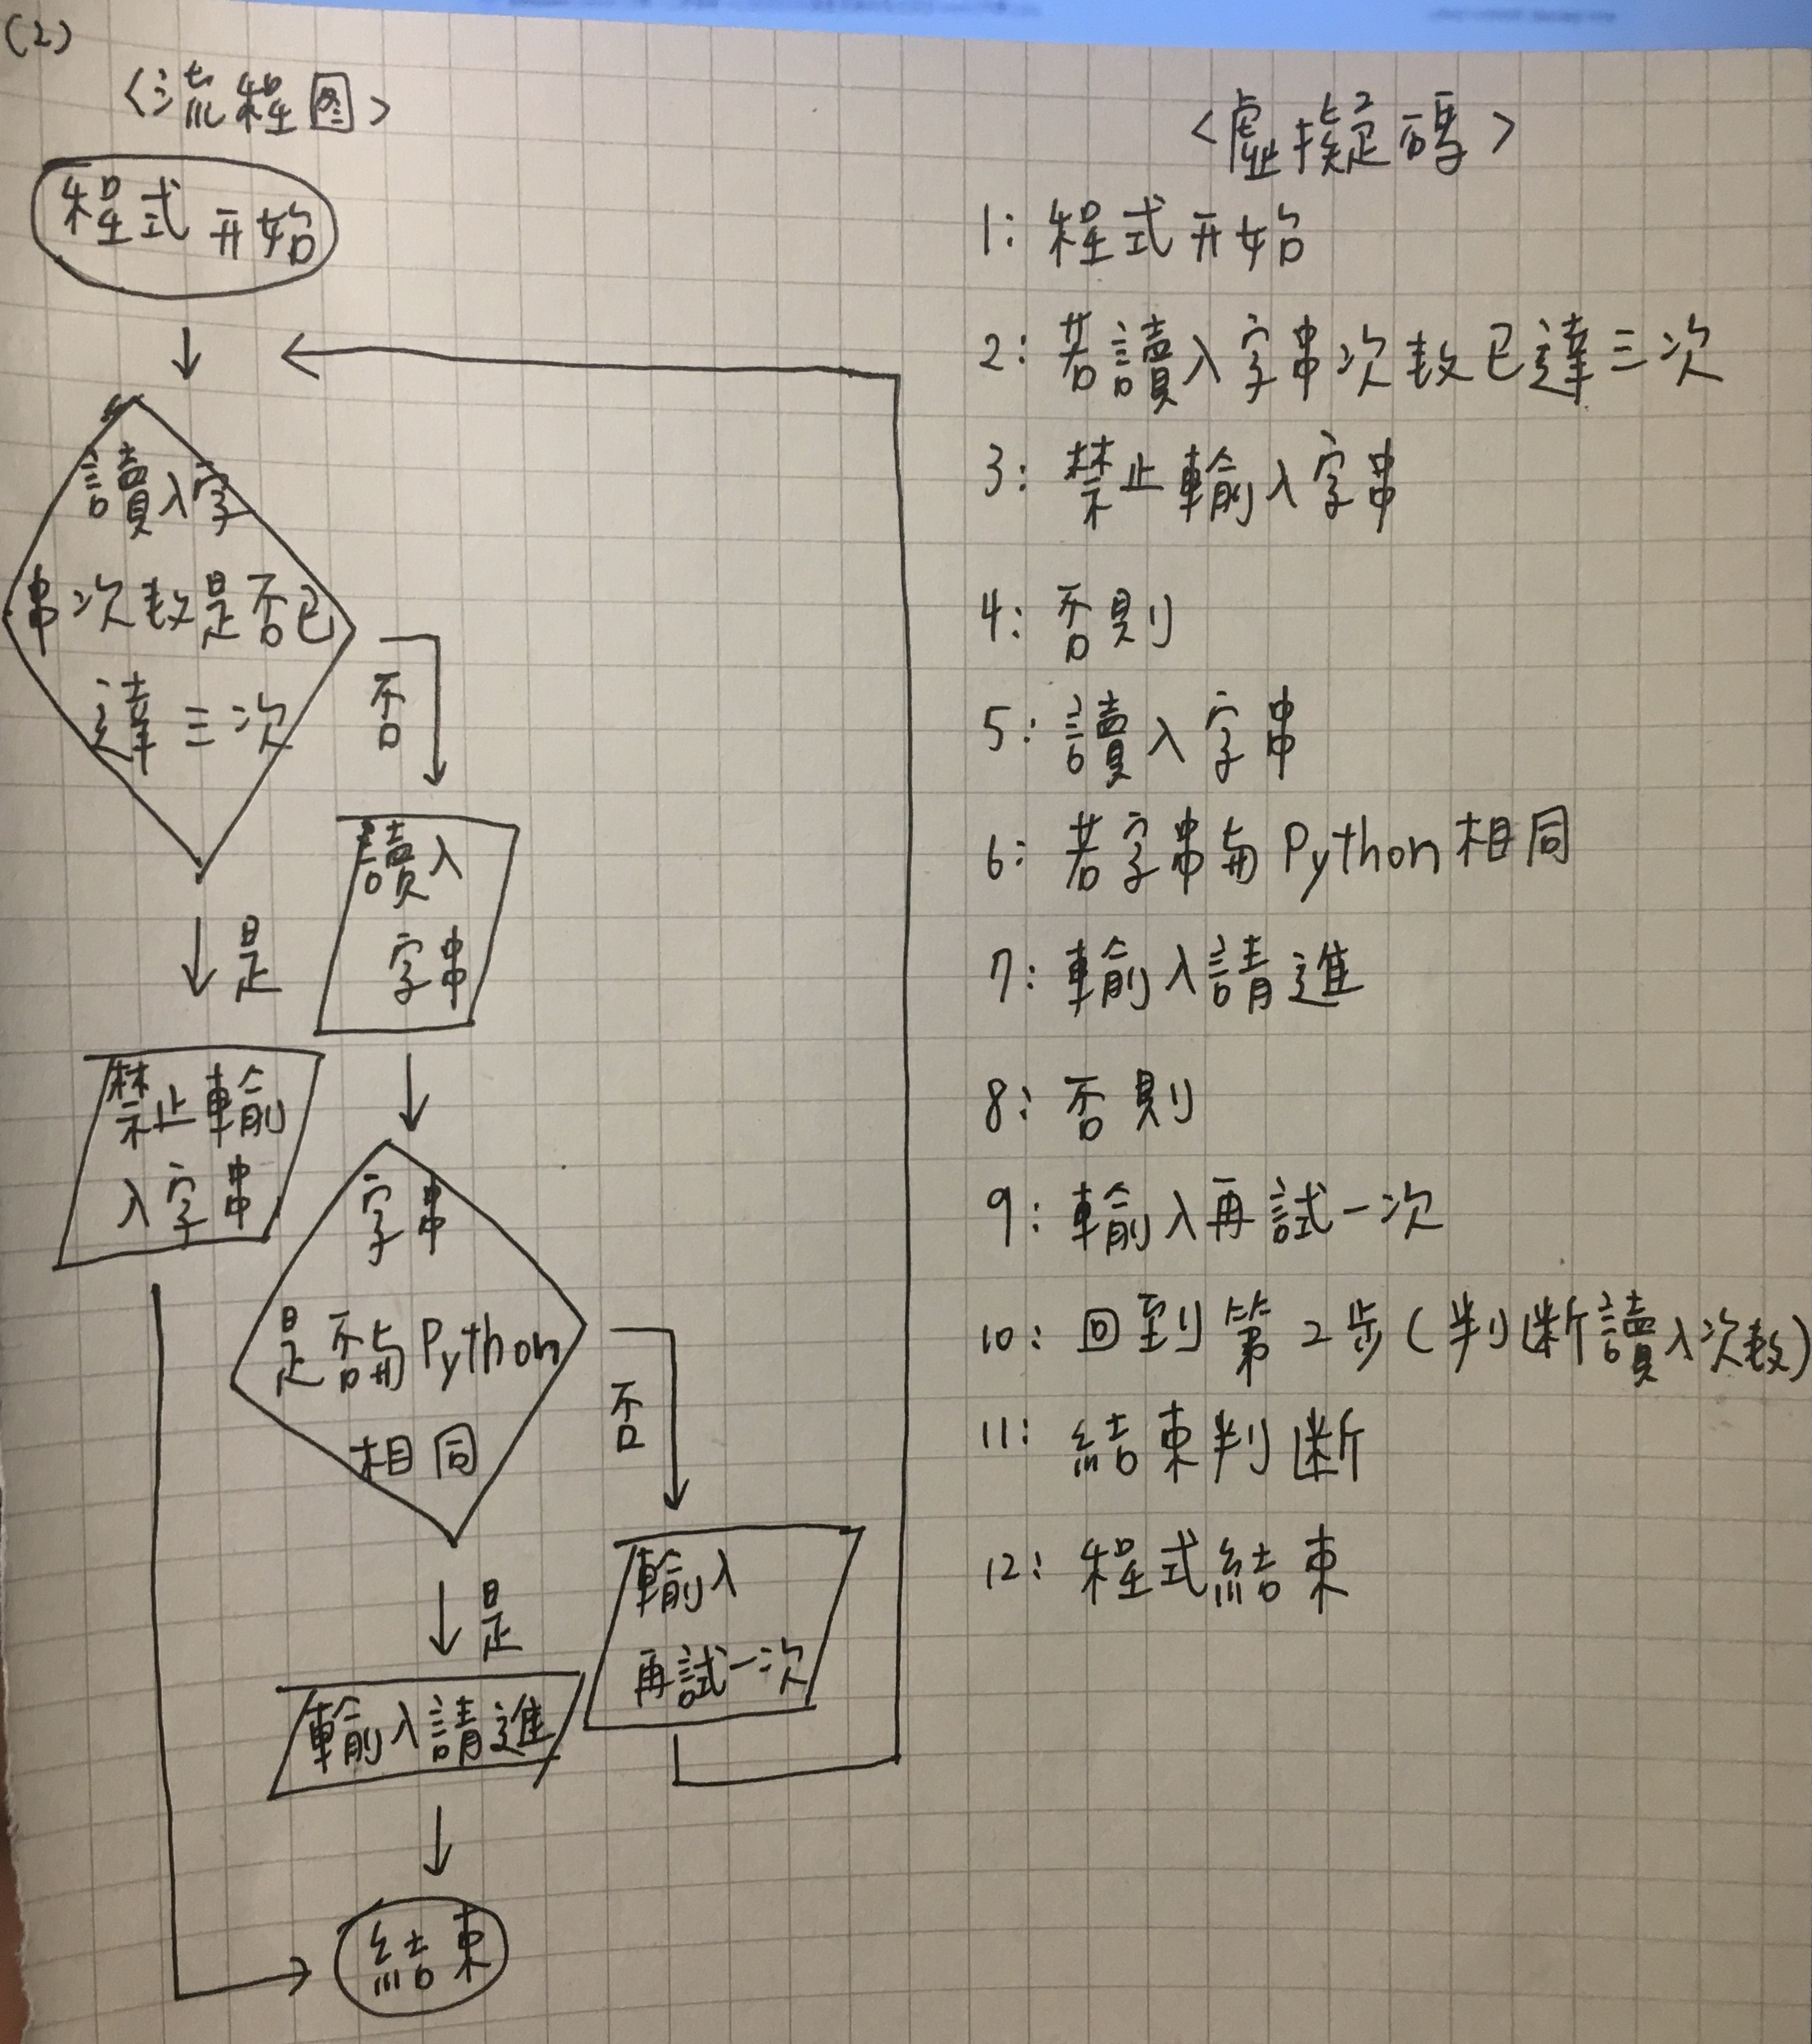 (2)
<流程图>
程式开始
讀入字
串次数是否已
達三次
否
是
讀入
字串
禁止輸
入字串
字串
是否與Python
相同
否
是
輸入
再試一次
輸入請進
結束
<虛擬碼>
1: 程式开始
2: 若讀入字串次数已達三次
3: 禁止輸入字串
4: 否則
5: 讀入字串
6: 若字串與Python相同
7: 輸入請進
8: 否則
9: 輸入再試一次
10: 回到第2步(判斷讀入次数)
11: 結束判斷
12: 程式結束